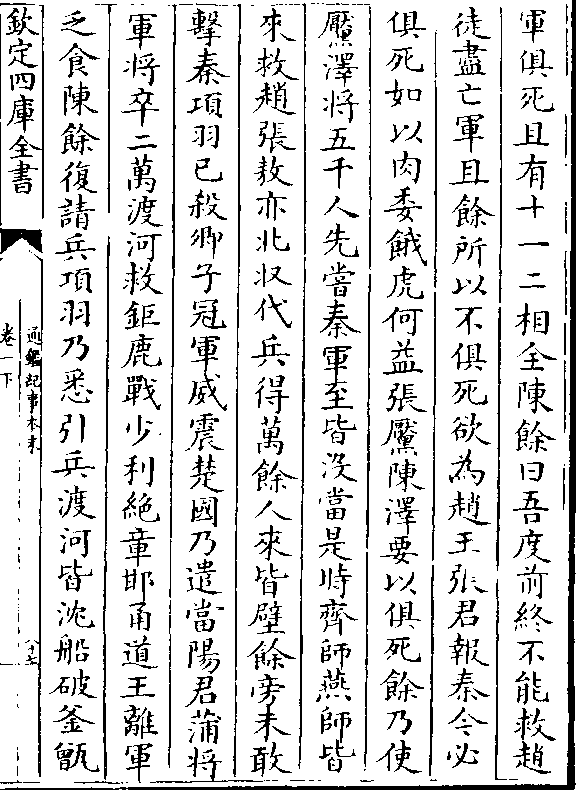 軍俱死且有十一二相全陳餘曰吾度前終不能救趙
徒盡亡軍且餘所以不俱死欲為趙王張君報秦今必
俱死如以肉委餓虎何益張黶陳澤要以俱死餘乃使
黶澤將五千人先嘗秦軍至皆没當是時齊師燕師皆
來救趙張敖亦北収代兵得萬餘人來皆壁餘旁未敢
擊秦項羽已殺卿子冠軍威震楚國乃遣當陽君蒲將
軍將卒二萬渡河救鉅鹿戰少利絶章邯甬道王離軍
乏食陳餘復請兵項羽乃悉引兵渡河皆沈船破釜甑
欽定四庫全書
通鑑紀事本末
卷一下
八十七